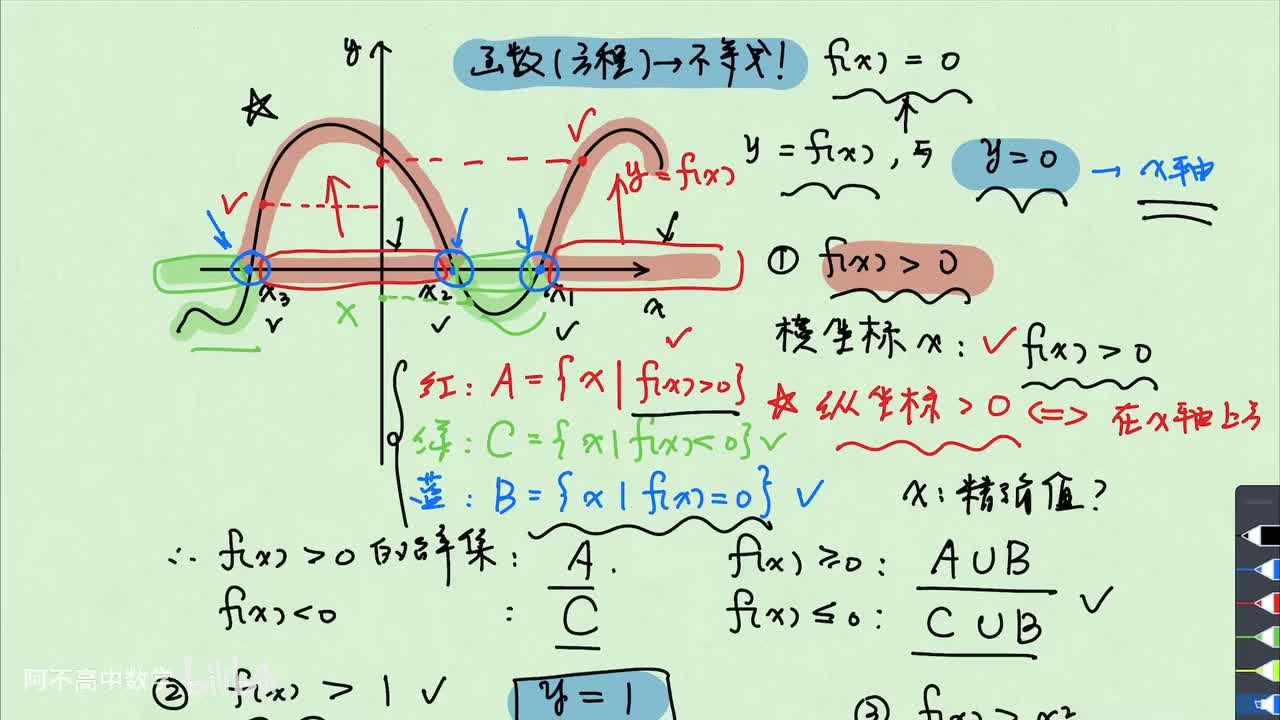 函数(方程)→不等式!
f(x) = 0
y
y = f(x), 与 y = 0 → x轴
y = f(x)
① f(x) > 0
x₃ x₂ x₁ x
x
横坐标 x: ✓ f(x) > 0
红: A = { x | f(x)>0}
☆ 纵坐标 > 0 <=> 在x轴上方
绿: C = { x | f(x)<0} ✓
蓝: B = { x | f(x)=0} ✓
x: 精确值?
∴ f(x) > 0 的解集: A.
f(x) ≥ 0: A∪B
f(x) < 0 : C
f(x) ≤ 0: C∪B ✓
阿不高中数学 bilibili
② f(x) > 1 ✓
y = 1
③ f(x) > x²